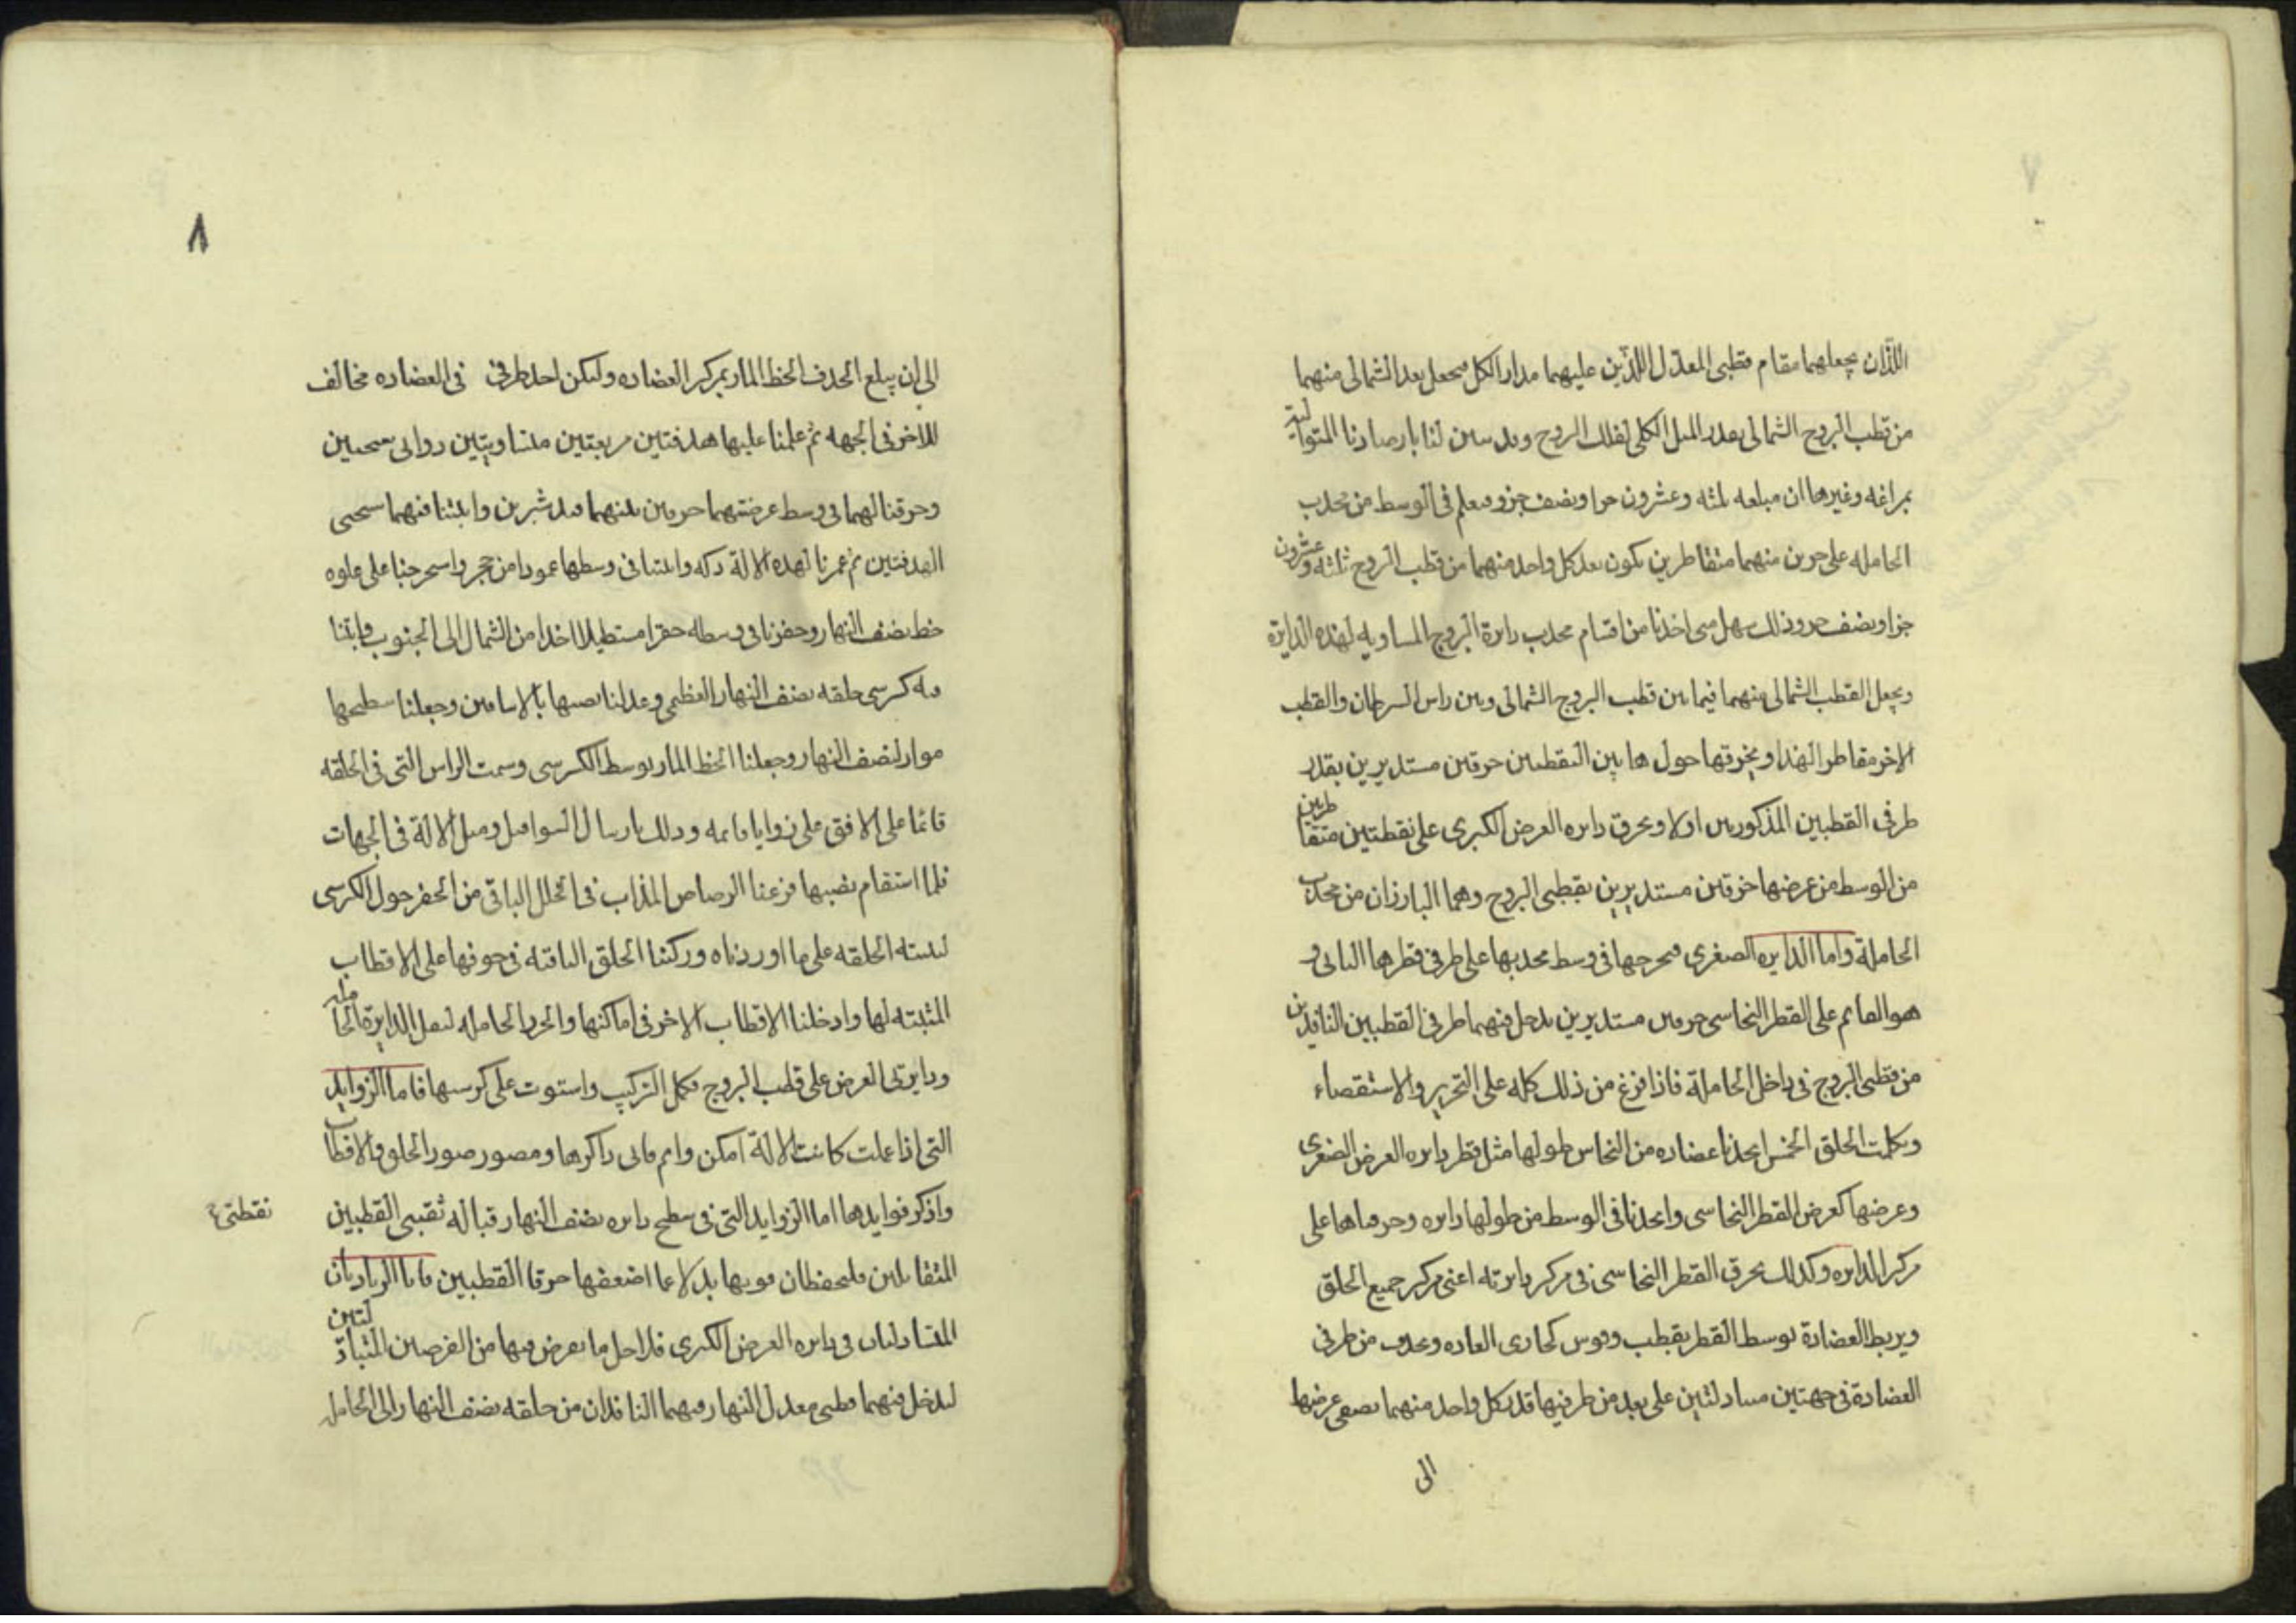 ٧
اللذان يجعلهما مقام قطبي المعدل اللذين عليهما مدار الكل فيجعل بعد الشمالي منهما
من قطب البروج الشمالي بقدر الميل الكلي لفلك البروج وقد تبين لنا بارصادنا المتوالية
بمراغه وغيرها ان مبلغه ثلثه وعشرون جزا ونصف جزو فيعلم في الوسط من محدب
الحامله على جزين منهما متقاطرين يكون بعد كل واحد منهما من قطب البروج ثلثه وعشرون
جزا ونصف جزو وذلك سهل متى اخذنا من اقسام محدب دايرة البروج المساويه لهذه الدايرة
ويجعل القطب الشمالي منهما فيما بين قطب البروج الشمالي وبين راس السرطان والقطب
الاخر مقاطر الهذا ويخرقها حول هاتين النقطتين خرقين مستديرين بقدر
طرفي القطبين المذكورين اولا ويخرق دايره العرض الكبرى على نقطتين متقاطرين
من الوسط من عرضها خرقين مستديرين بقطبي البروج وهما البارزان من محدب
الحاملة واما الدايره الصغرى فيخرجها في وسط محدبها على طرفي قطرها الثاني و
هو القايم على القطر النحاسي خرقين مستديرين يدخل فيهما طرفي القطبين النافذين
من قطبي البروج في داخل الحاملة فاذا فرغ من ذلك كله على التحرير والاستقصاء
وكملت الحلق الخمس اتخذنا عضاده من النحاس طولها مثل قطر دايره العرض الصغرى
وعرضها كعرض القطر النحاسي واتخذنا في الوسط من طولها دايره وخرقناها على
مركز الدايره وكذلك يخرق القطر النحاسي في مركز دايرته اعني مركز جميع الحلق
ويربط العضادة بوسط القطر بقطب وفرس كجاري العاده ويحدف من طرفي
العضادة في جهتين متبادلتين على بعد من طرفيها قدر كل واحد منهما نصفي عرضها
الى
٨
الى ان يبلع الحدف الخط المار بمركز العضاده وليكن احد طرفي في العضاده مخالف
للاخر في الجهه ثم علمنا عليها هدفتين مربعتين متساويتين
وخرقنا لهما في وسط عرضتهما خرقين بينهما قدر شبرين واثبتنا فيهما
الهدفتين ثم عمرنا لهذه الالة دكه واثبتنا في وسطها عمودا من حجر واستخرجنا على علوه
خط نصف النهار وحفرنا في وسطه حفرا مستطيلا اخذا من الشمال الى الجنوب واثبتنا
فيه كرسي حلقه نصف النهار العظمى وعدلنا نصبها بالاسافين وجعلنا سطيحها
مواز لنصف النهار وجعلنا الخط المار بوسط الكرسي وسمت الراس التي في الحلقه
قائما على الافق على زوايا قايمه وذلك بارسال الشواقيل وميل الالة في الجهات
فلما استقام نصبها فرغنا الرصاص المذاب في الخلل الباقي من الحفر حول الكرسي
لتثبته الحلقه على ما اوردناه وركبنا الحلق الباقيه في جوفها على الاقطاب
المثبته لها وادخلنا الاقطاب الاخر في اماكنها والحرد الحامله لنقل الدايرة الحامله
ودايرتي العرض على قطب البروج فكمل التركيب واستوت على كرسيها فاما الزوايد
التي اذا عملت كانت الالة امكن واتم فاني ذاكرها ومصور صور الحلق والاقطاب
واذكر فوايدها اما الزوايد التي في سطح دايره نصف النهار قبالة ثقبي القطبين
نقطتي
المتقابلين فليحفظان قويها بدلا عما اضعفها خرقا القطبين فاما الزيادتان
المتبادلتان في دايره العرض الكبرى فلاجل ما يعرض فيها من الفرضين المتبادلتين
ليدخل فيهما قطبي معدل النهار وهما النافذان من حلقه نصف النهار الى الحامل